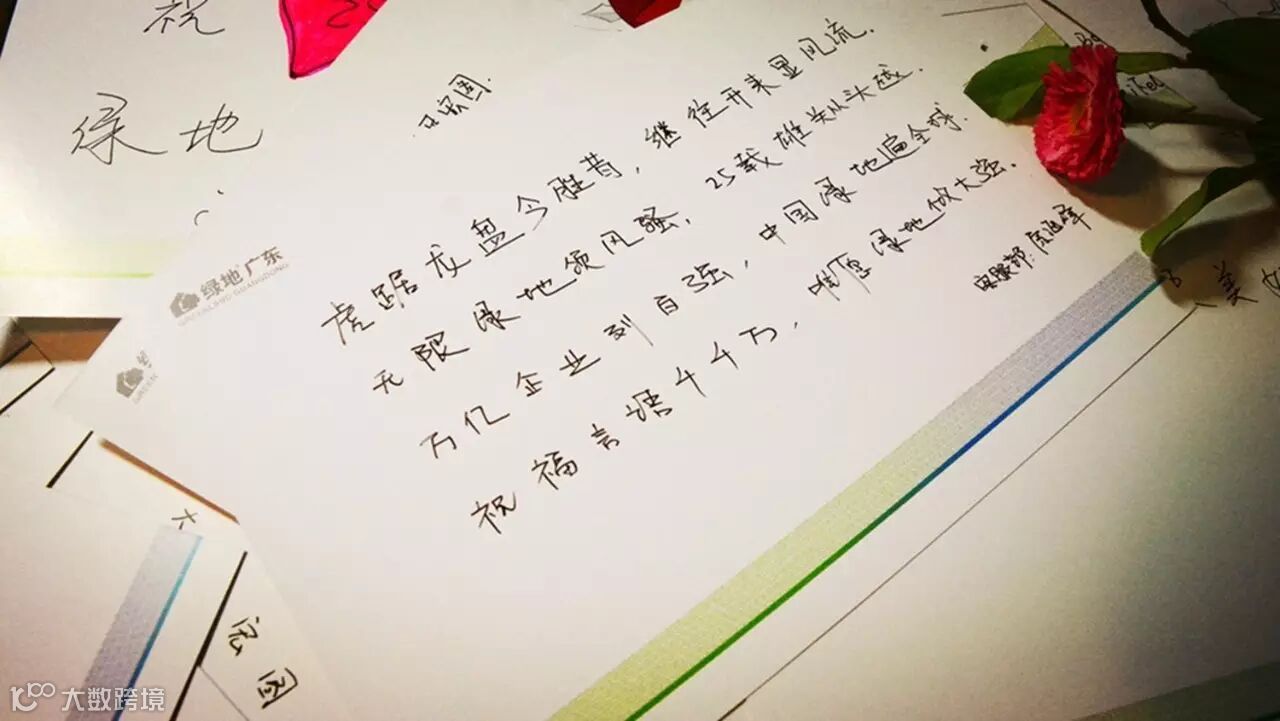 祝
绿地
宏图
虎踞龙盘今胜昔，继往开来显风流.
无限绿地领风骚，25载雄关从头越.
万亿企业到自强，中国绿地遍全球.
祝福言语千千万，唯愿绿地做大强.
绿地广东
GREENLAND GUANGDONG
美好
大
宏图
大数跨境